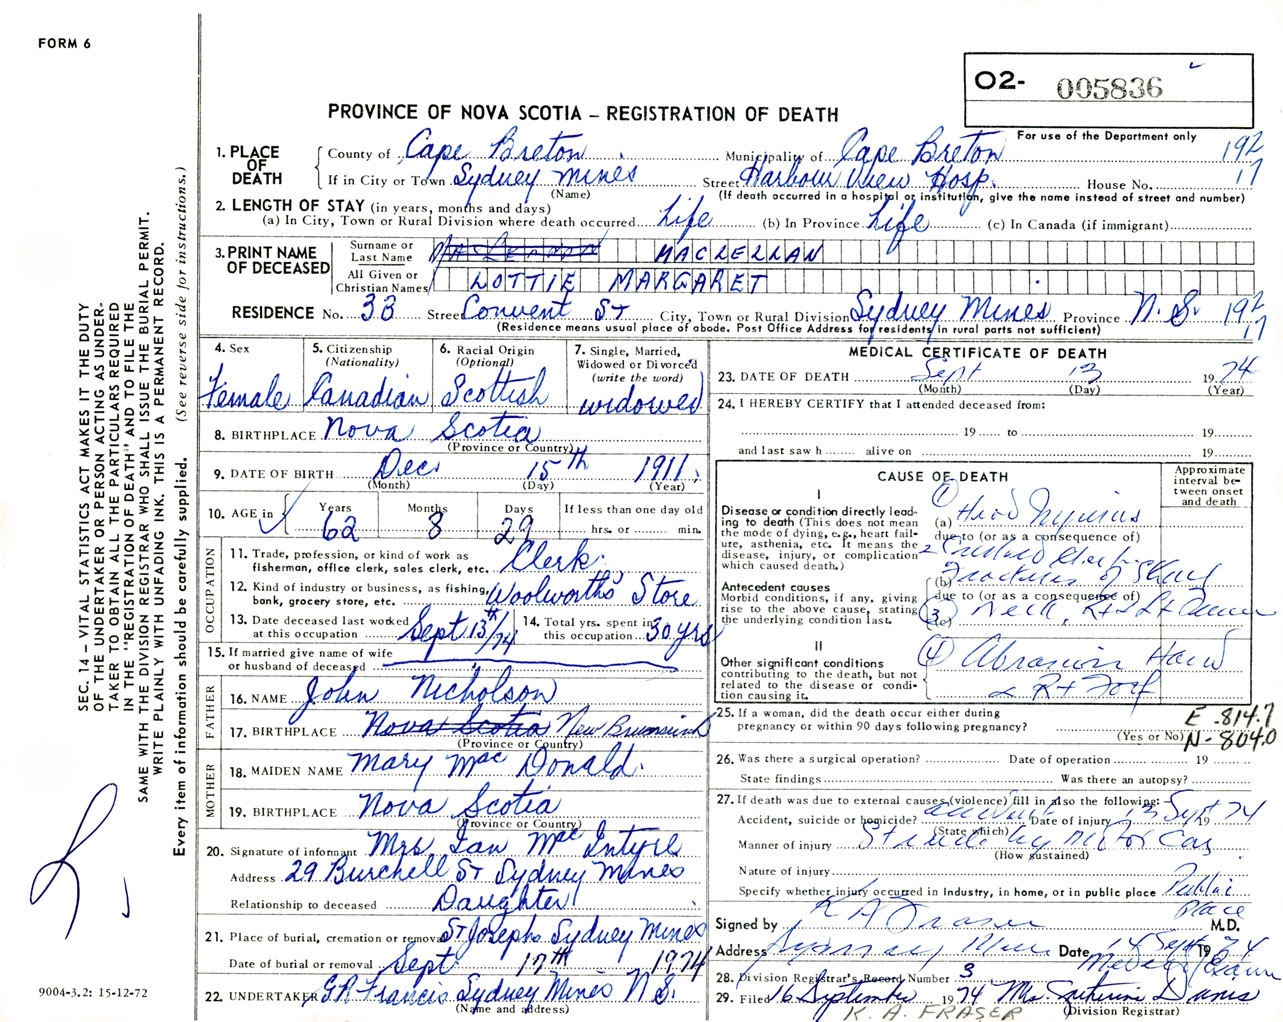 FORM 6
O2- 005836
PROVINCE OF NOVA SCOTIA – REGISTRATION OF DEATH
For use of the Department only
1. PLACE OF DEATH
County of Cape Breton Municipality of Cape Breton 192
If in City or Town Sydney Mines Street Harbour View Hosp. House No. 17
(Name) (If death occurred in a hospital or institution, give the name instead of street and number)
2. LENGTH OF STAY (in years, months and days)
(a) In City, Town or Rural Division where death occurred Life (b) In Province Life (c) In Canada (if immigrant)
3. PRINT NAME OF DECEASED
Surname or Last Name MACLELLAN
All Given or Christian Names LOTTIE MARGARET
RESIDENCE No. 33 Street Convent St City, Town or Rural Division Sydney Mines Province N.S. 192
17
(Residence means usual place of abode. Post Office Address for residents in rural parts not sufficient)
4. Sex Female
5. Citizenship (Nationality) Canadian
6. Racial Origin (Optional) Scottish
7. Single, Married, Widowed or Divorced (write the word) widowed
8. BIRTHPLACE Nova Scotia
(Province or Country)
9. DATE OF BIRTH Dec. 15th 1911
(Month) (Day) (Year)
10. AGE in Years 62 Months 8 Days 29 If less than one day old hrs. or min.
OCCUPATION
11. Trade, profession, or kind of work as fisherman, office clerk, sales clerk, etc. Clerk
12. Kind of industry or business, as fishing, bank, grocery store, etc. Woolworth's Store
13. Date deceased last worked at this occupation Sept 13th/74
14. Total yrs. spent in this occupation 30 yrs
15. If married give name of wife or husband of deceased
FATHER
16. NAME John Nicholson
17. BIRTHPLACE Nova Scotia New Brunswick
(Province or Country)
MOTHER
18. MAIDEN NAME Mary Mac Donald
19. BIRTHPLACE Nova Scotia
(Province or Country)
20. Signature of informant Mrs Ian Mac Intyre
Address 29 Burchell St Sydney Mines
Relationship to deceased Daughter
21. Place of burial, cremation or removal St Josephs Sydney Mines
Date of burial or removal Sept 17th 1974
22. UNDERTAKER Francis Sydney Mines N.S.
(Name and address)
MEDICAL CERTIFICATE OF DEATH
23. DATE OF DEATH Sept 13 1974
(Month) (Day) (Year)
24. I HEREBY CERTIFY that I attended deceased from:
19 to 19
and last saw h alive on 19
CAUSE OF DEATH
Approximate interval between onset and death
I
Disease or condition directly leading to death (This does not mean the mode of dying, e.g., heart failure, asthenia, etc. It means the disease, injury, or complication which caused death.)
(1)
(a) Head Injuries
due to (or as a consequence of)
2
(b) Fractures of Skull
due to (or as a consequence of)
Antecedent causes
Morbid conditions, if any, giving rise to the above cause, stating the underlying condition last.
(3)
(c) Neck, Rt & Lt Femur
II
Other significant conditions contributing to the death, but not related to the disease or condition causing it.
(4) Abrasion Hand
& Rt Foot
25. If a woman, did the death occur either during pregnancy or within 90 days following pregnancy?
(Yes or No)
E-814.7
N-804.0
26. Was there a surgical operation? Date of operation 19
State findings Was there an autopsy?
27. If death was due to external causes (violence) fill in also the following:
Accident, suicide or homicide? accident Date of injury 13 Sept 1974
(State which)
Manner of injury Struck by Motor Car
(How sustained)
Nature of injury
Specify whether injury occurred in industry, in home, or in public place Public Place
Signed by K A Fraser M.D.
Address Sydney Mines Date 14 Sept 1974
Medical Examr
28. Division Registrar's Record Number 3
29. Filed 16 September 1974 Mrs. Davis
(Division Registrar)
K. A. FRASER
SEC. 14 – VITAL STATISTICS ACT MAKES IT THE DUTY OF THE UNDERTAKER OR PERSON ACTING AS UNDERTAKER TO OBTAIN ALL THE PARTICULARS REQUIRED IN THE "REGISTRATION OF DEATH" AND TO FILE THE SAME WITH THE DIVISION REGISTRAR WHO SHALL ISSUE THE BURIAL PERMIT.
WRITE PLAINLY WITH UNFADING INK. THIS IS A PERMANENT RECORD.
Every item of information should be carefully supplied. (See reverse side for instructions.)
9004-3.2: 15-12-72